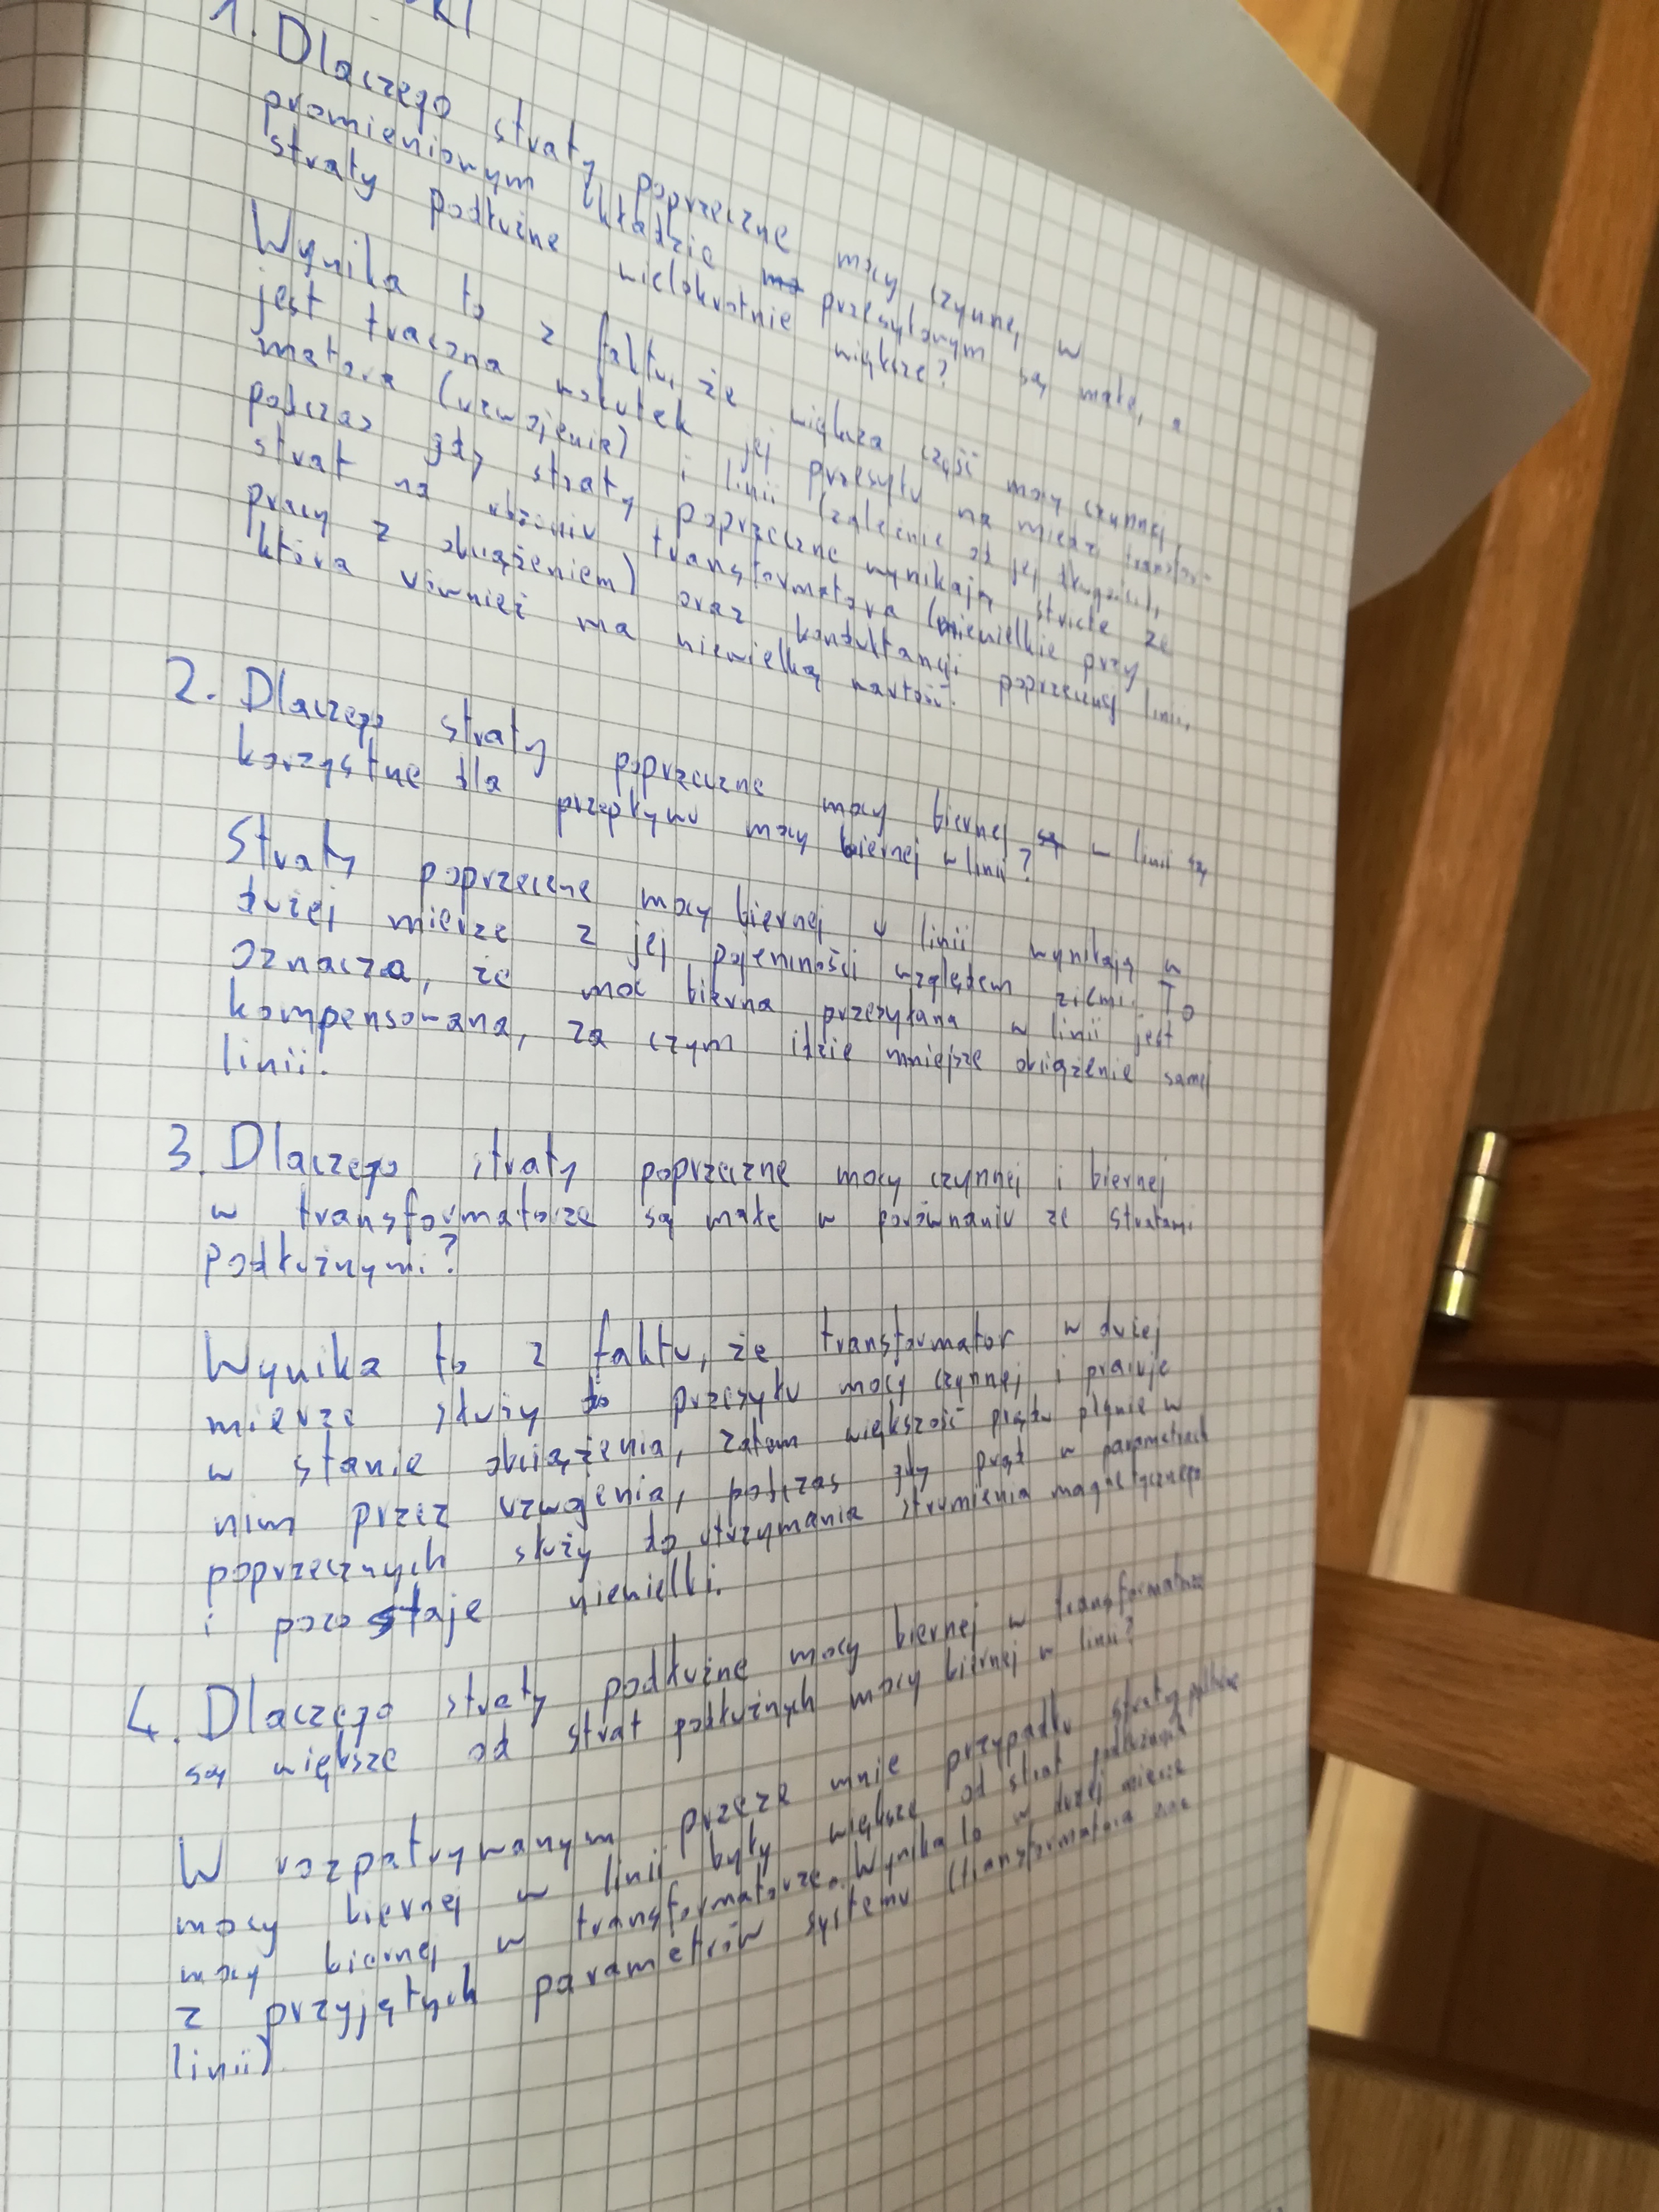 1. Dlaczego straty poprzeczne mocy czynnej w
promieniowym układzie przesyłowym są małe, a
straty podłużne wielokrotnie większe?
Wynika to z faktu, że większa część mocy czynnej
jest tracona wskutek jej przesyłu na miedzi transfor-
matora (uzwojenia) i linii (zależnie od jej długości),
podczas gdy straty poprzeczne wynikają stricte ze
strat na rdzeniu transformatora (niewielkie przy
pracy z obciążeniem) oraz konduktancji poprzecznej linii,
która również ma niewielką wartość.
2. Dlaczego straty poprzeczne mocy biernej w linii są
korzystne dla przepływu mocy biernej w linii?
Straty poprzeczne mocy biernej w linii wynikają w
dużej mierze z jej pojemności względem ziemi. To
oznacza, że moc bierna przesyłana w linii jest
kompensowana, za czym idzie mniejsze obciążenie samej
linii.
3. Dlaczego straty poprzeczne mocy czynnej i biernej
w transformatorze są małe w porównaniu ze stratami
podłużnymi?
Wynika to z faktu, że transformator w dużej
mierze służy do przesyłu mocy czynnej i pracuje
w stanie obciążenia, zatem większość prądu płynie w
nim przez uzwojenia, podczas gdy prąd w parametrach
poprzecznych służy do utrzymania strumienia magnetycznego
i pozostaje niewielki.
4. Dlaczego straty podłużne mocy biernej w transformatorze
są większe od strat podłużnych mocy biernej w linii?
W rozpatrywanym przeze mnie przypadku straty podłużne
mocy biernej w linii były większe od strat podłużnych
mocy biernej w transformatorze. Wynika to w dużej mierze
z przyjętych parametrów systemu (transformatora oraz
linii)